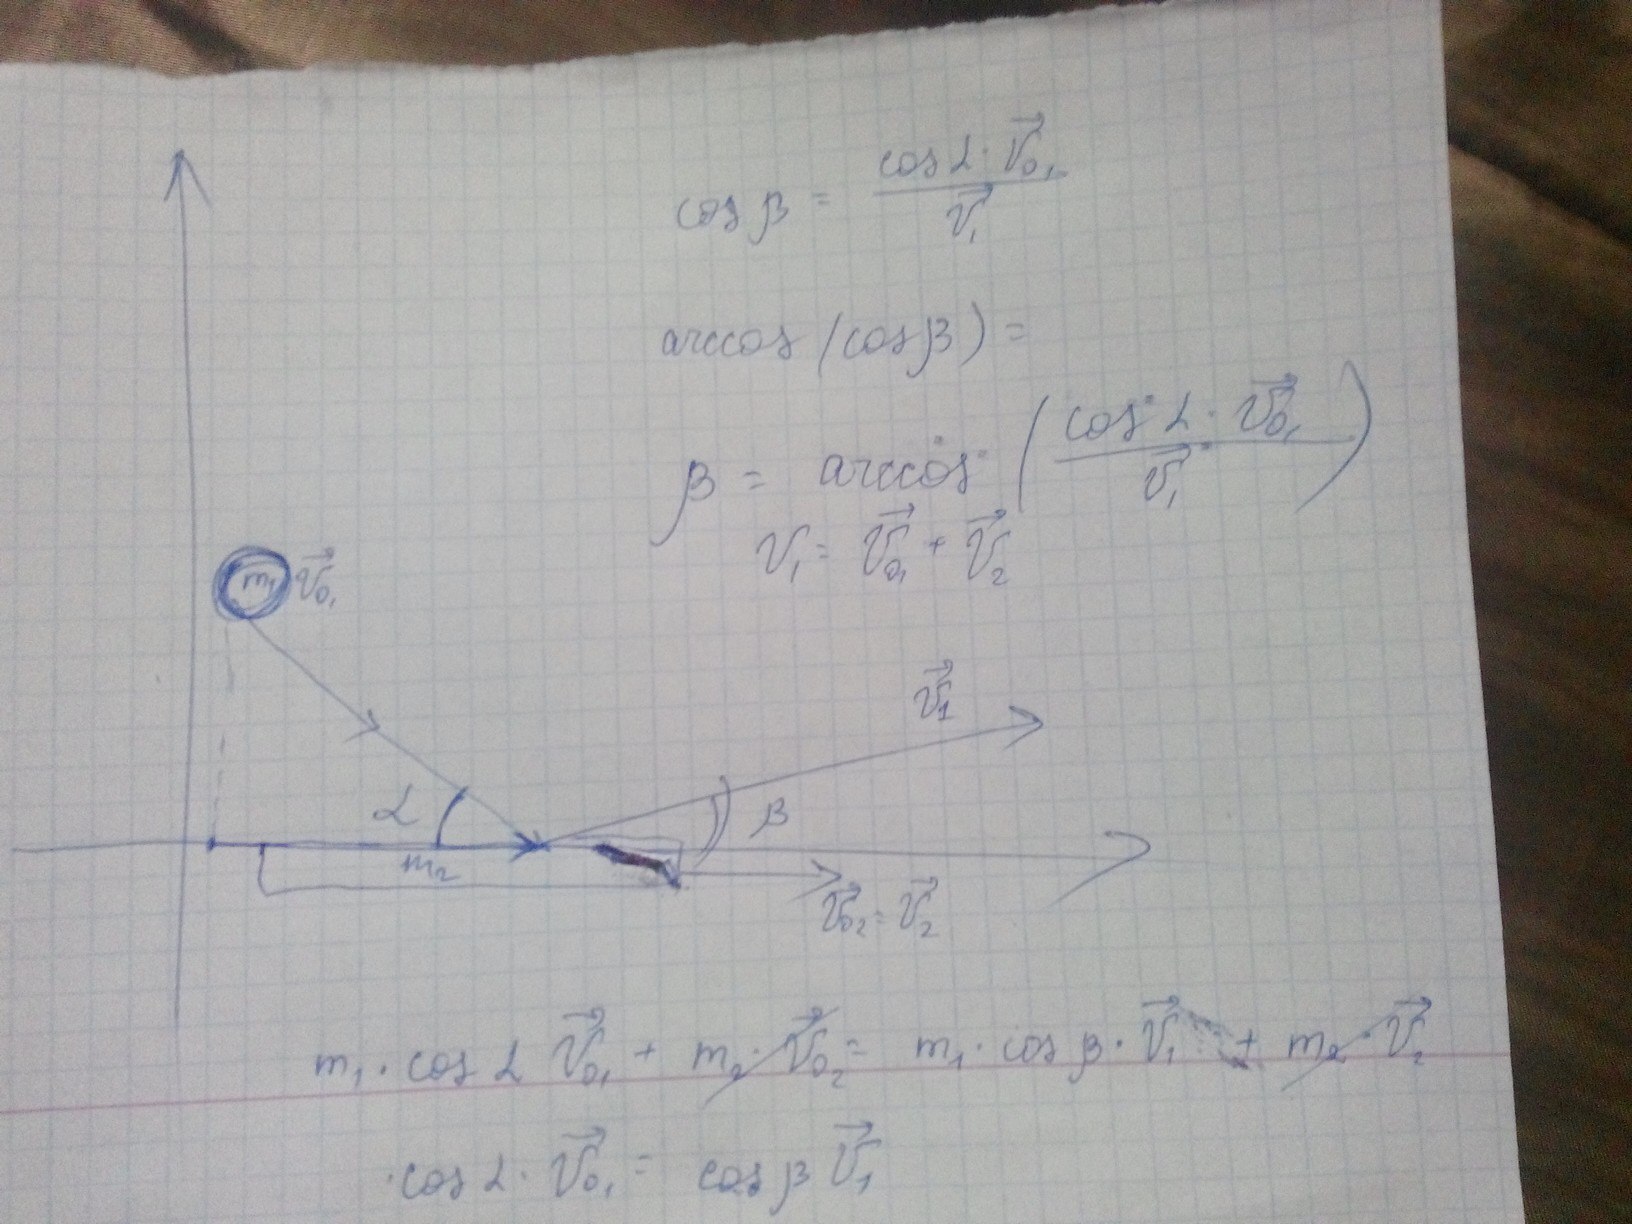 cos β = (cos α · v⃗₀₁) / v⃗₁
arccos (cos β) =
β = arccos ( (cos α · v⃗₀₁) / v⃗₁ )
v₁ = v⃗₀₁ + v⃗₂
m₁ v⃗₀₁
v⃗₁
α
β
m₂
v⃗₀₂ = v⃗₂
m₁ · cos α v⃗₀₁ + m₂ · v⃗₀₂ = m₁ · cos β · v⃗₁ + m₂ · v⃗₂
· cos α · v⃗₀₁ = cos β v⃗₁